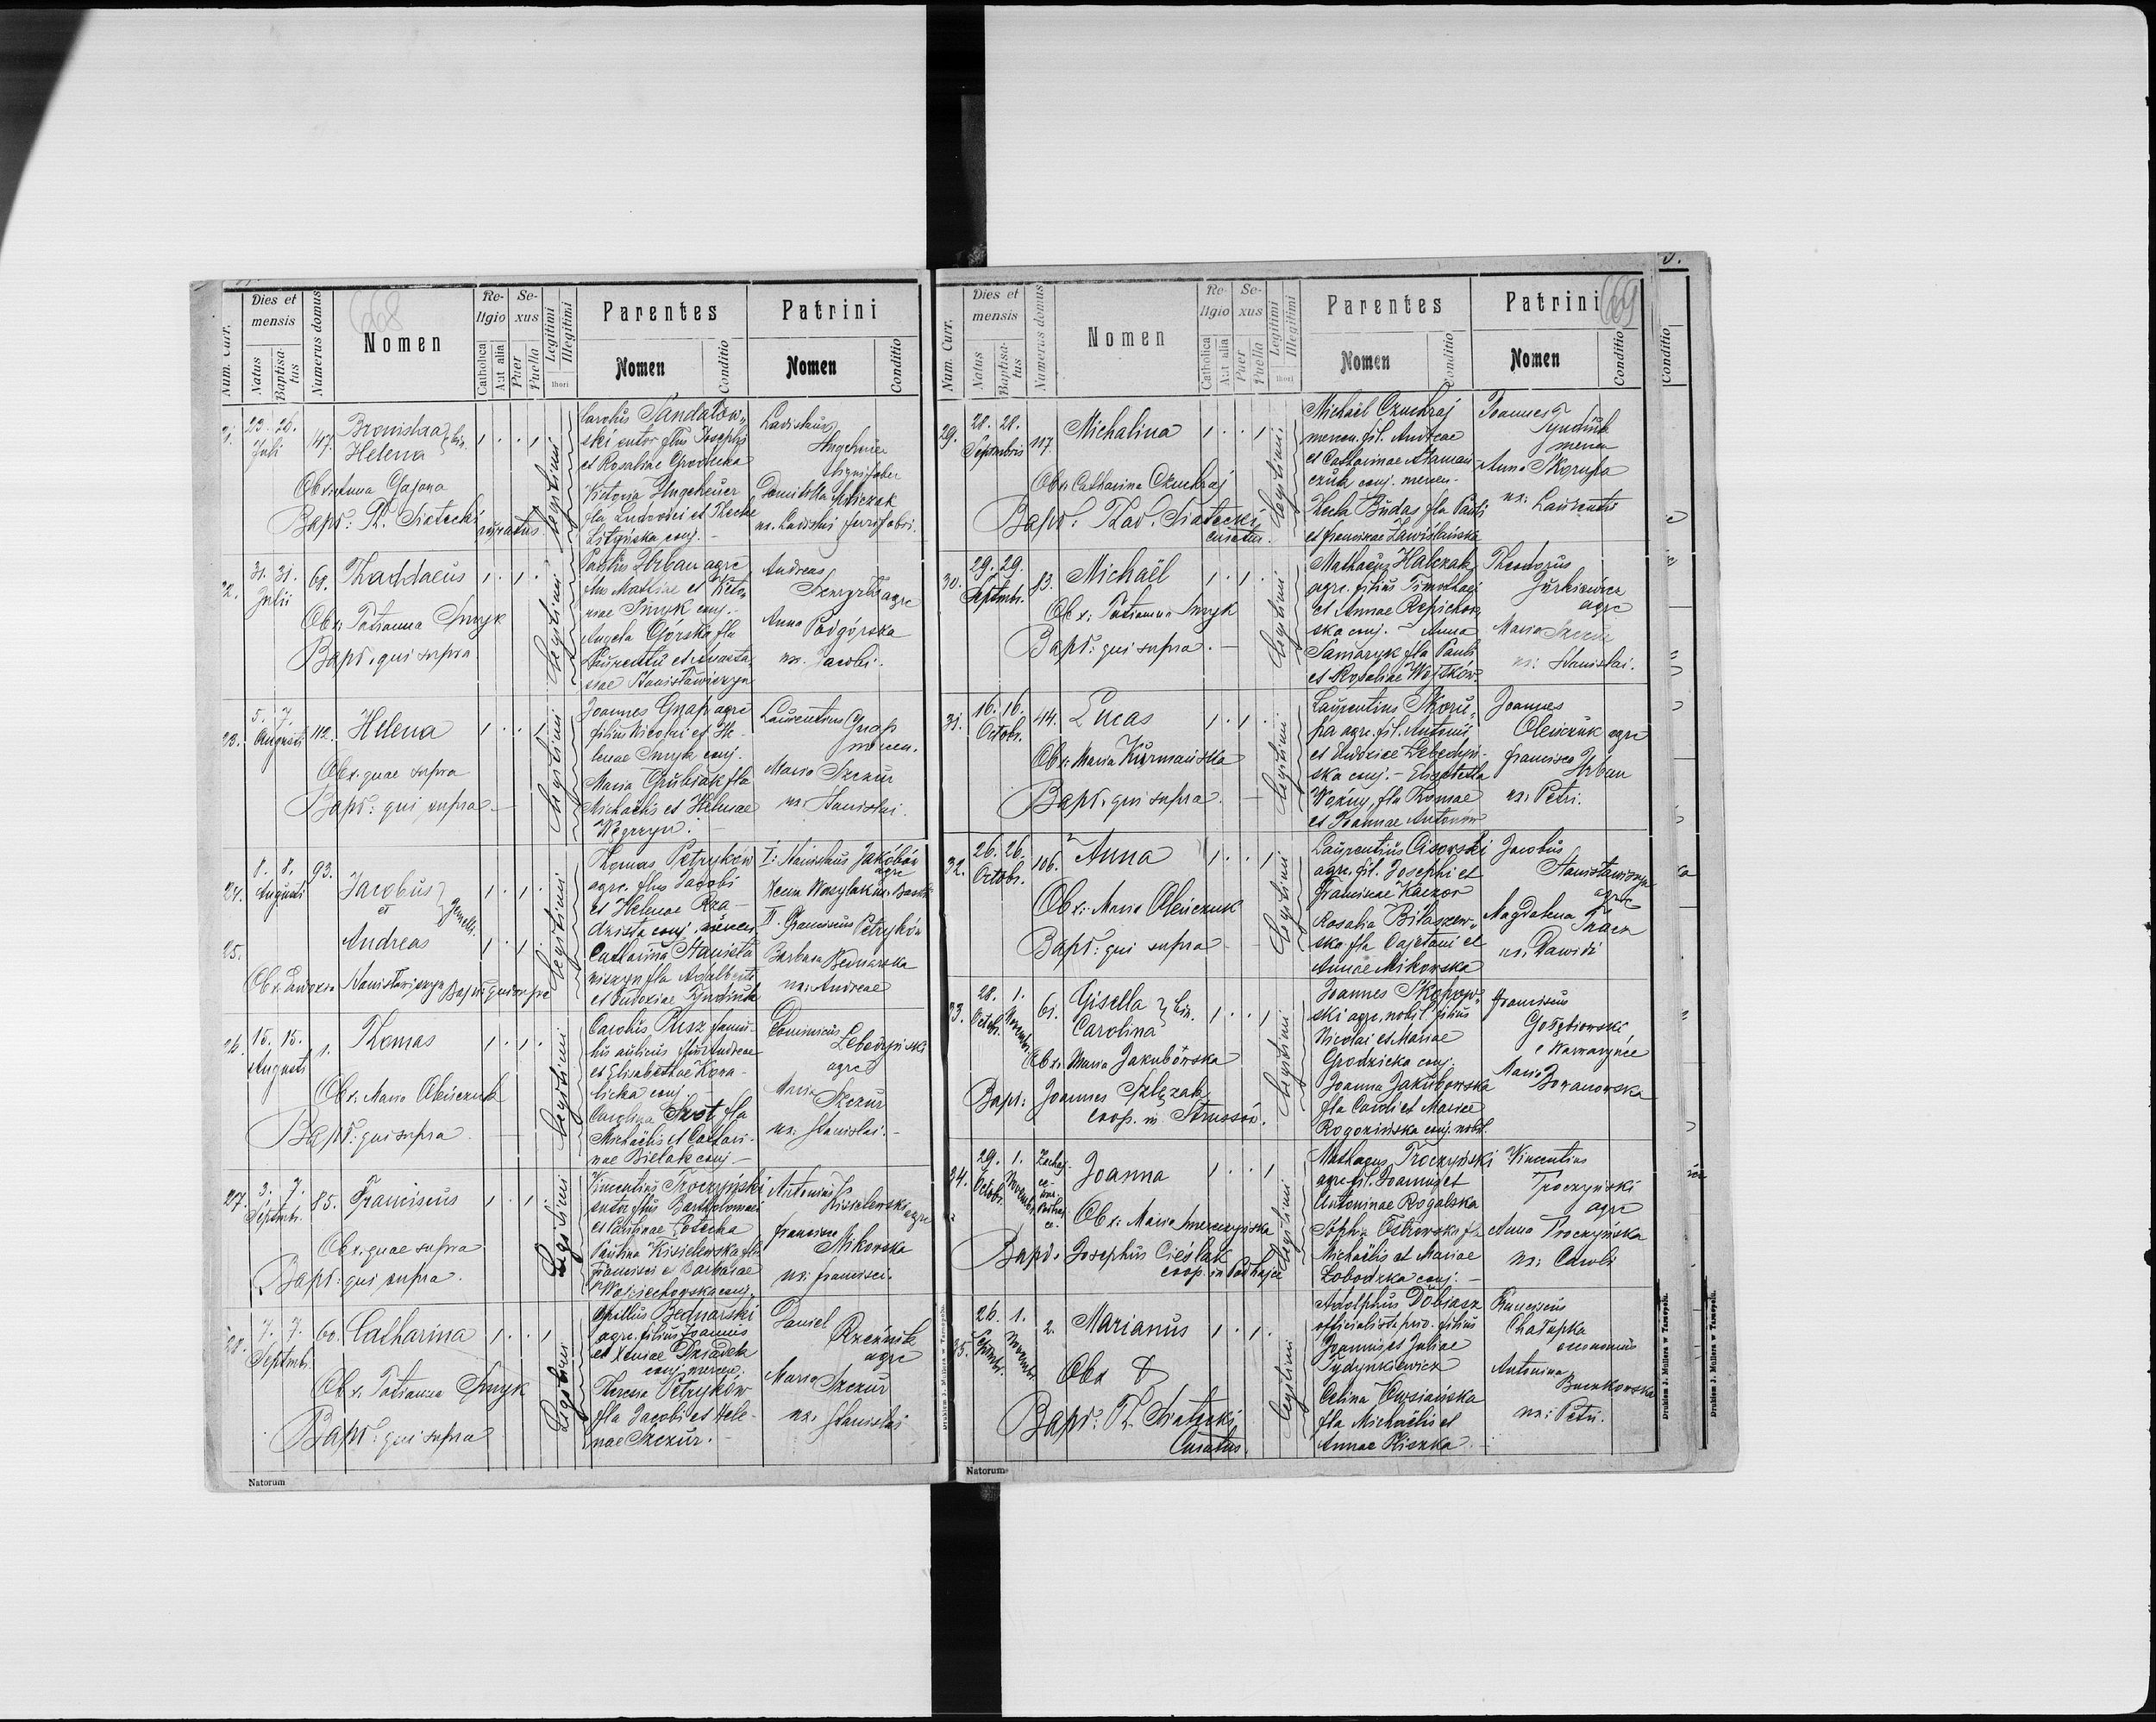 668
Num. Curr.
Dies et mensis
Natus
Baptisatus
Numerus domus
Nomen
Religio
Catholica
Aut alia
Sexus
Puer
Puella
Legitimi
Illegitimi
thori
Parentes
Nomen
Conditio
Patrini
Nomen
Conditio
21.
23. 26.
Juli
147.
Bronislava
Helena
bin.
1 . . 1
Obx. Anna Gajona
Bapt: Th. Siatecki curatus
Legitimi
Carolus Sandałow„
ski sutor flus Josephi
et Rosaliae Grodzcka
Victoria Ungeheuer
fla Ludovici et Theclae
conj. -
Ladislaus
Ungeheuer
Domitella
ux. Ladislai ferrifabri.
22.
31. 31.
Julii
68.
Thaddaeus
1 . 1 .
Obx. Tatianna Smyk
Bapt. qui supra
Legitimi
Paulus Urban agre
flus Mathiae et
Smyk conj. -
Angela Górska fla
Laurentii et Anasta„
siae Stanisławiczyn
Andreas
agre
Anna
Podgórska
ux. Jacobi.
23.
5. 7.
Augusti
112.
Helena
1 . . 1
Obx. quae supra
Bapt: qui supra -
Legitimi
Joannes Gnap agre
filius Nicolai et He-
lenae Smyk conj.
Maria Grubiak fla
Michaelis et Helenae
Węgrzyn. -
Laurentius Gnap
mercen.
Maria Szczur
ux. Stanislai.
24.
8. 8.
Augusti
93.
Jacobus
et
25.
Andreas
gemelli
1 . 1 .
1 . 1 .
Obx. Eudoxia Stanisławiczyn Bapt: qui supra
Legitimi
Thomas Petryków
agre. flus Jacobi
et Helenae Rza-
dziska conj. mercen.
Catharina Stanisła
wiczyn fla Adalberti
et Eudoxiae Tyndiuk
I: Stanislaus Jakóbów
agre
Xenia Wasylak ux.
II. Franciscus Petryków
Barbara Bednarska
ux. Andreae
26.
15. 15.
Augusti
1.
Thomas
1 . 1 .
Obx. Maria Oleńczuk
Bapt: qui supra -
Legitimi
Carolus Rusz famu-
lus aulicus flus Andreae
et Elisabethae Kona-
licka conj. -
Carolina Szot, fla
Michaelis et Cathari-
nae Bielak conj. -
Dominicus
Lebedyński
agre
Maria
Szczur
ux: Stanislai. -
27.
3. 7.
Septmb.
85.
Franciscus
1 . 1 .
Obx. quae supra
Bapt: qui supra.
Legitimi
Vincentius Troczyński
sutor flus Bartholomaei
et Paulinae Potocka
Paulina Kisielewska fla
Francisci et Barbarae
Wojciechowska conj.
Antonius
Kisielewski
agre
Francisca
Mikowska
ux. Francisci.
28.
7. 7.
Septmb.
60.
Catharina
1 . . 1
Obx. Tatianna Smyk
Bapt: qui supra
Legitimi
Bednarski
agre. filius Joannis
et Xeniae Dziadek
conj. mercen.
Theresa Petryków
fla Jacobi et Hele-
nae Szczur. -
Daniel
Rzeźnik
agre
Maria Szczur
ux. Stanislai
Natorum
Drukiem J. Müllera w Tarnopolu.
669
Num. Curr.
Dies et mensis
Natus
Baptisatus
Numerus domus
Nomen
Religio
Catholica
Aut alia
Sexus
Puer
Puella
Legitimi
Illegitimi
thori
Parentes
Nomen
Conditio
Patrini
Nomen
Conditio
29.
28. 28.
Septembris
117.
Michalina
1 . . 1
Obx. Catharina Czuchraj
Bapt: Thad. Siatecki
curatus.
Legitimi
Michaël Czuchraj
mercen. fil. Andreae
et Catharinae Ataman-
czuk conj. mercen. -
Thecla Budas fla Pauli
et Franciscae Zawiślańska
Joannes
Tyndiuk
mercen
Anna Skorupa
ux: Laurentii
30.
29. 29.
Septmb.
83.
Michaël
1 . 1 .
Obx: Tatianna Smyk
Bapt: qui supra. -
Legitimi
Mathaeus Halczak
agre. filius Timothaei
et Annae Repichow„
ska conj. - Anna
Samaryk fla Pauli
et Rosaliae Wojtków.
Theodorus
Jurkiewicz
agre
Maria Szczur
ux: Stanislai.
31.
16. 16.
Octobr.
44.
Lucas
1 . 1 .
Obx. Maria Kurmańska
Bapt. qui supra. -
Legitimi
Laurentius Skoru„
pa agre. fil. Antonii
et Eudoxiae Lebedyń-
ska conj. - Elisabetha
Woźny, fla Thomae
et Joannae Antonów
Joannes
Oleńczuk agre
Francisca
Urban
ux. Petri.
32.
26. 26.
Octobr.
106.
Anna
1 . . 1
Obx: Maria Oleńczuk
Bapt: qui supra -
Legitimi
Laurentius Cisowski
agre. fil. Josephi et
Franciscae Kaczor
Rosalia Bilaszew„
ska fla Cajetani et
Annae Mikowska
Jacobus
Stanisławiczyn
agre
Magdalena
Tkacz
ux. Dawidi
33.
28. 1.
Octobr. Novembr.
61.
Gisella
Carolina
bin.
1 . . 1
Obx. Maria Jakubowska
Bapt: Joannes Szlęzak
coop. in Strussów.
Legitimi
Joannes Skopow„
ski agre. nobil. filius
Nicolai et Mariae
Grodzicka conj.
Joanna Jakubowska
fla Caroli et Mariae
Rogozińska conj. nobil.
Franciscus
Gołębiowski
e Warwaryńce
Maria
Boranowska
34.
29. 1.
Octobr. Novembr.
Joanna
1 . . 1
Obx: Maria Smerczyńska
Bapt. Josephus Cieślak
coop. in Podhajce
Legitimi
Mathaeus Troczyński
agre fil. Joannis et
Antoninae Rogalska
Sophia Ostrowska fla
Michaëlis et Mariae
Łobodzka conj. -
Vincentius
Troczyński
agre
Anna Troczyńska
ux: Caroli
35.
26. 1.
Septmbr. Novembr.
2.
Marianus
1 . 1 .
Obx
Bapt: Th. Siatecki
Curatus.
Legitimi
Adolphus Dobiasz
officialista priv. filius
Joannis et Juliae
Tydynkiewicz
Celina Owsiańska
fla Michaëlis et
Annae Kliszka
Franciscus
Chałupka
oeconomus
Antonina
Buczkowska
ux: Petri.
Natorum
Drukiem J. Müllera w Tarnopolu.
Conditio
Drukiem J. Müllera w Tarnopolu.